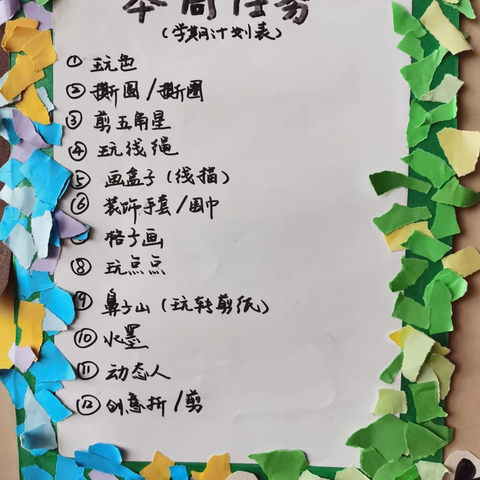 本周任务
(学期计划表)
① 玩色
② 撕圆/撕圈
③ 剪五角星
④ 玩线绳
⑤ 画盒子(线描)
⑥ 装饰手套/围巾
格子画
⑧ 玩点点
⑨ 鼻子山(玩转剪纸)
⑩ 水墨
⑪ 动态人
⑫ 创意折/剪